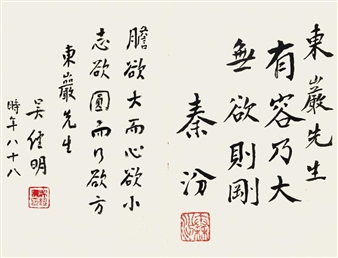 東巖先生
有容乃大
無欲則剛
秦汾
膽欲大而心欲小
志欲圓而行欲方
東巖先生
吳經明
時年八十八